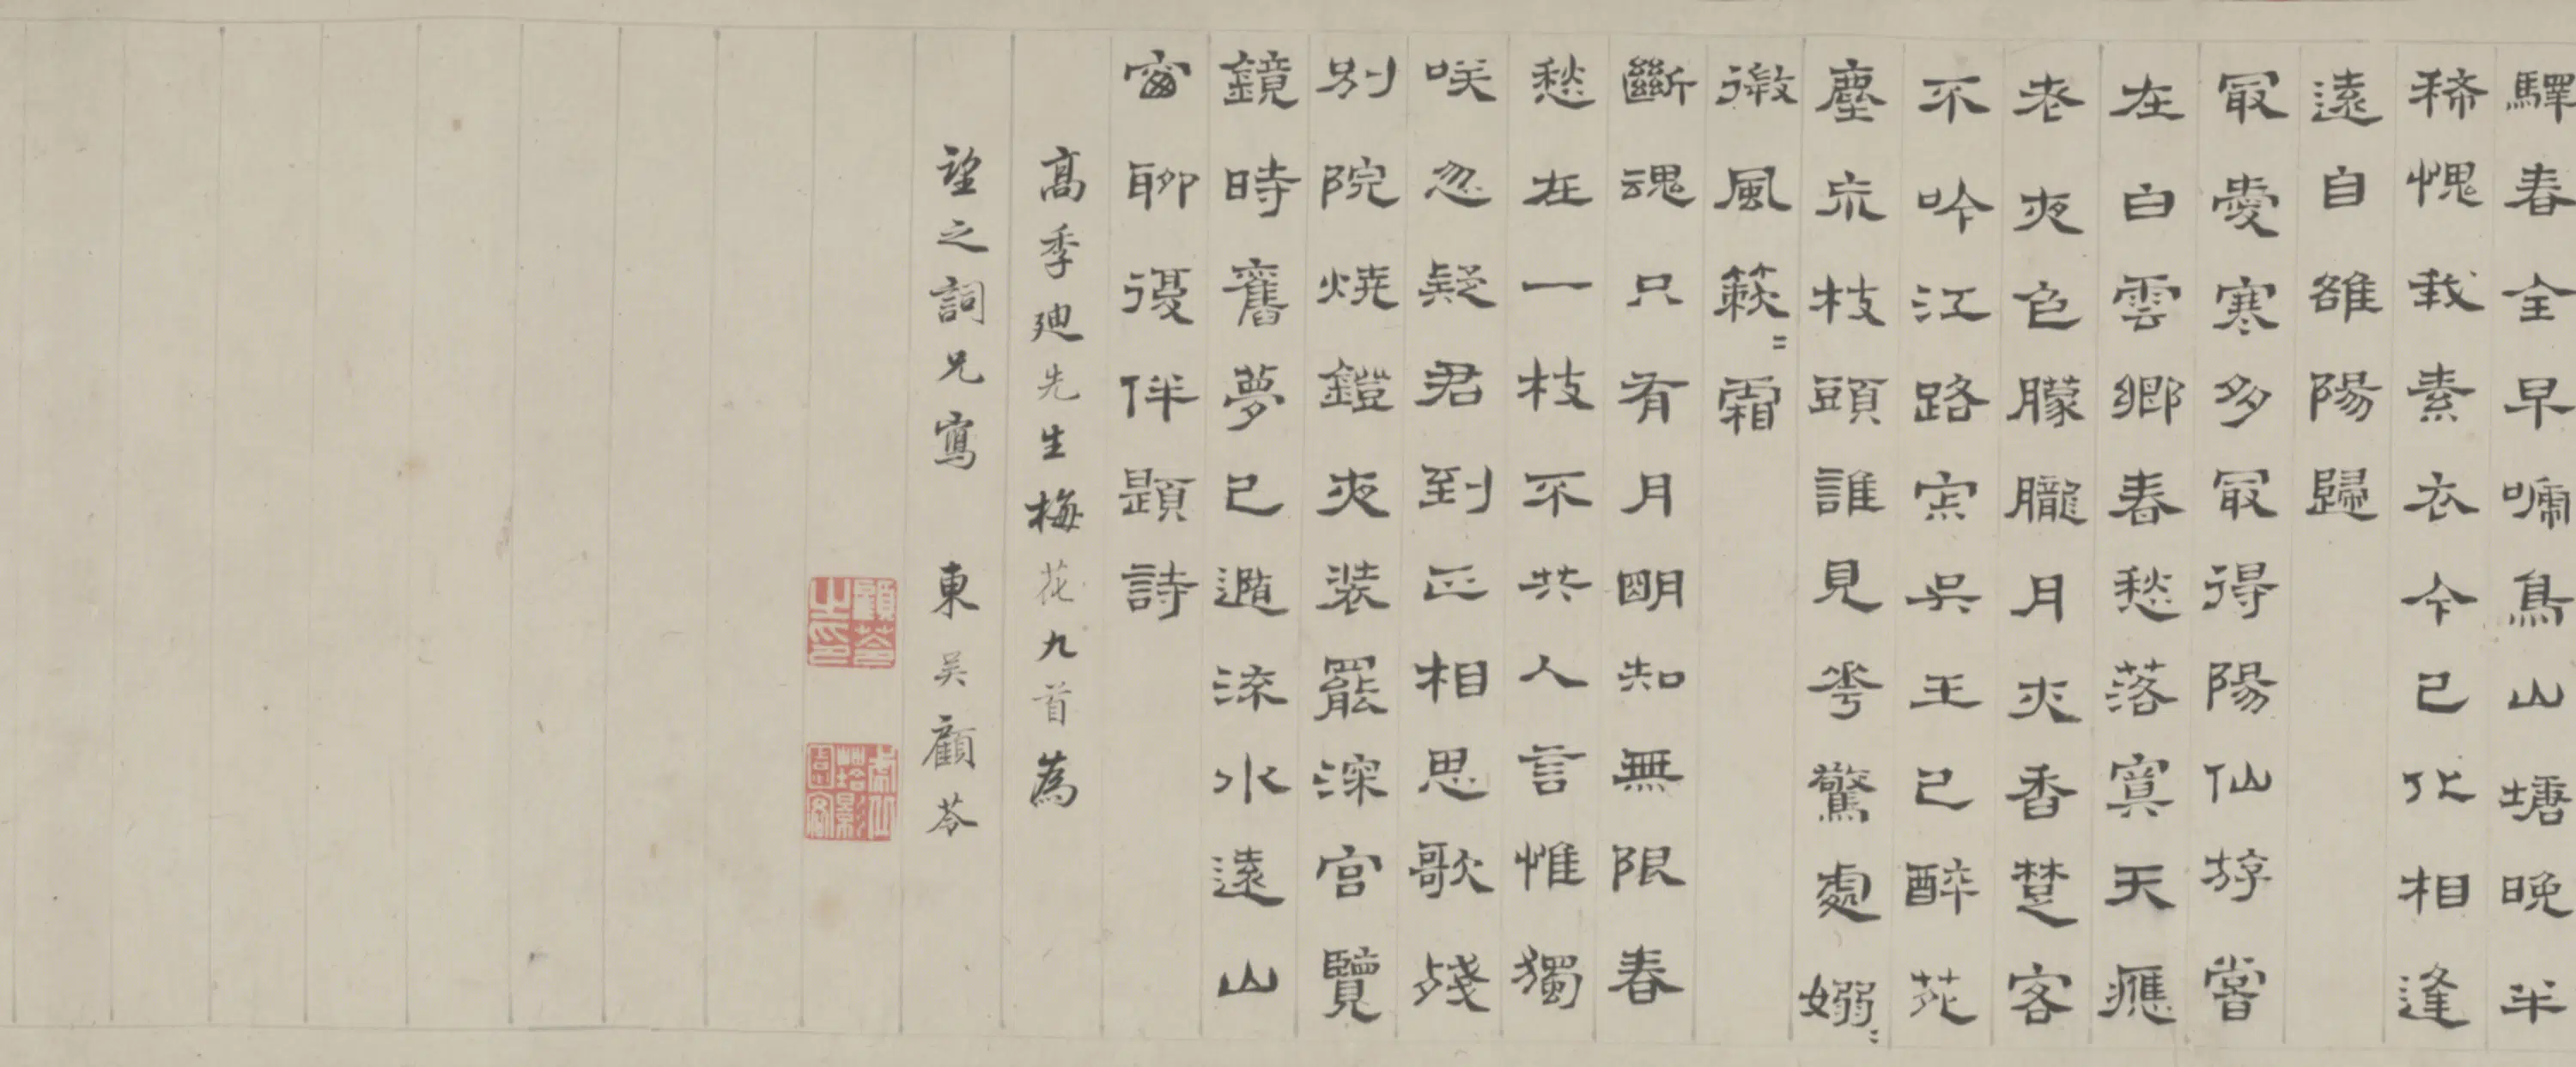 驛春全早啼鳥山塘晚半
稀愧我素衣今已化相逢
遠自雒陽歸
最愛寒多最得陽仙斿嘗
在白雲鄉春愁落寞天應
老夜色朦朧月亦香楚客
不吟江路寂吳王已醉苑
塵荒枝頭誰見花驚處嫋〻
微風簌〻霜
斷魂只有月明知無限春
愁在一枝不共人言惟獨
咲忽疑君到正相思歌殘
別院燒鐙夜裝罷深宮覽
鏡時舊夢已隨流水遠山
窗聊復伴題詩
高季迪先生梅花九首為
望之詞兄寫 東吳顧苓
顧苓之印